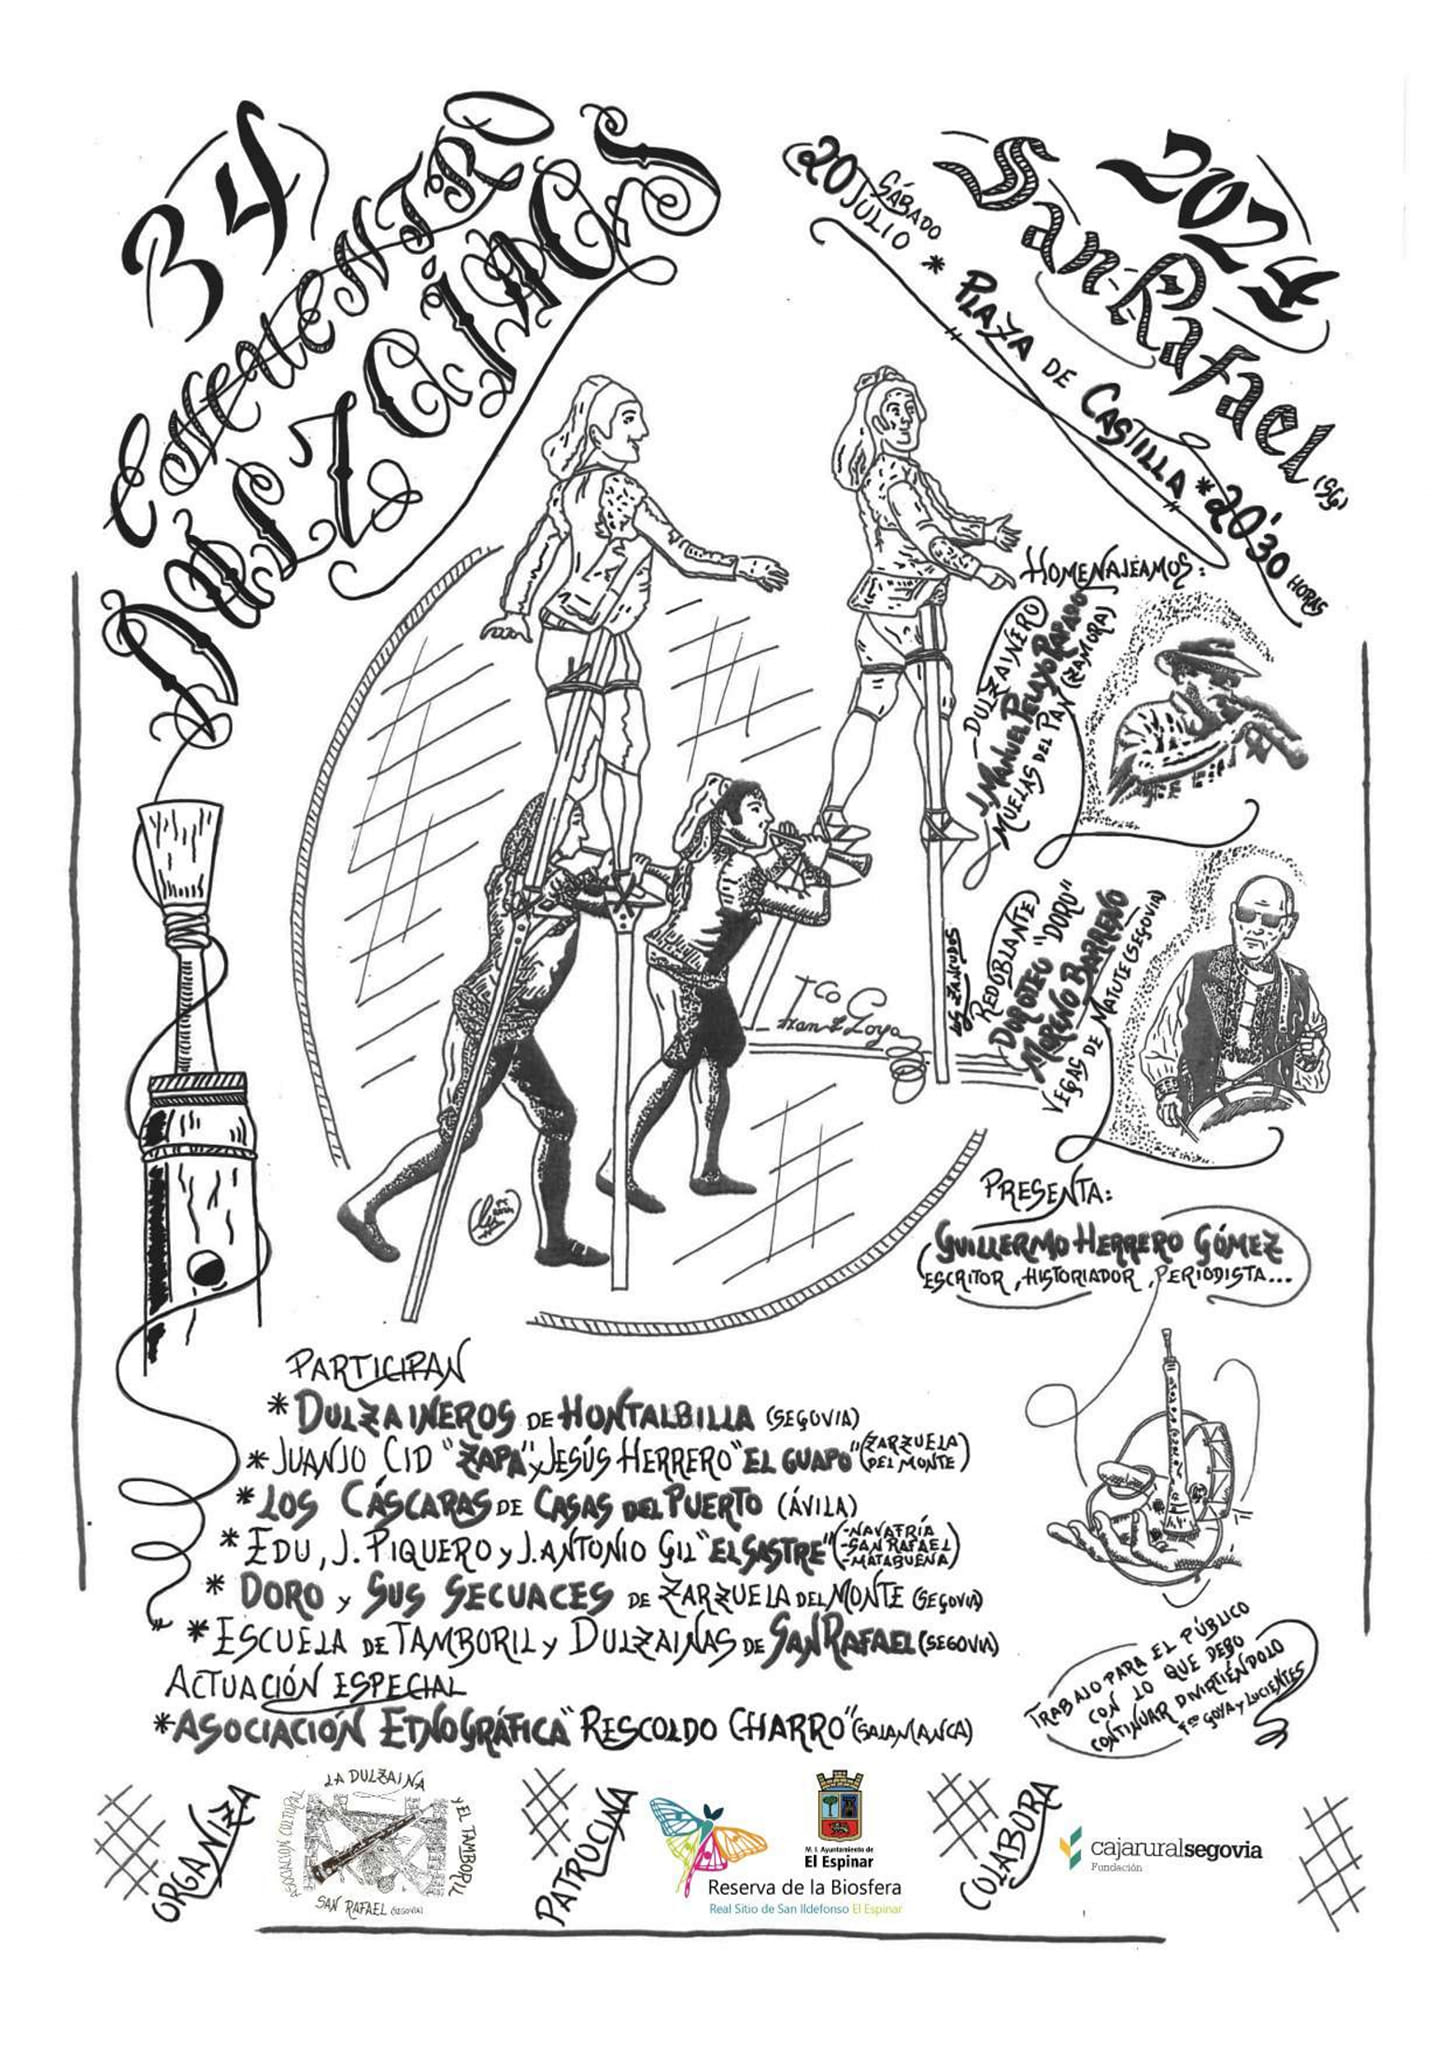 34
ENCUENTRO
DULZAINAS
2024
San Rafael (SG)
SÁBADO
20 JULIO * PLAZA DE CASTILLA * 20'30 HORAS
HOMENAJEAMOS:
DULZAINERO
J. MANUEL PELAYO RAPADO
MUELAS DEL PAN (ZAMORA)
REDOBLANTE
DOROTEO "DORO"
MORENO BARREÑO
VEGAS DE MATUTE (SEGOVIA)
LOS ZANCUDOS
Fco Goya
PRESENTA:
GUILLERMO HERRERO GÓMEZ
ESCRITOR, HISTORIADOR, PERIODISTA...
PARTICIPAN
* DULZAINEROS DE HONTALBILLA (SEGOVIA)
* JUANJO CID "ZAPA" Y JESÚS HERRERO "EL GUAPO" (ZARZUELA DEL MONTE)
* LOS CÁSCARAS DE CASAS DEL PUERTO (ÁVILA)
* EDU, J. PIQUERO Y J. ANTONIO GIL "EL SASTRE" (-NAVAFRÍA -SAN RAFAEL -MATABUENA)
* DORO Y SUS SECUACES DE ZARZUELA DEL MONTE (SEGOVIA)
* ESCUELA DE TAMBORIL Y DULZAINAS DE SAN RAFAEL (SEGOVIA)
ACTUACIÓN ESPECIAL
* ASOCIACIÓN ETNOGRÁFICA "RESCOLDO CHARRO" (SALAMANCA)
TRABAJO PARA EL PÚBLICO
CON LO QUE DEBO
CONTINUAR DIVIRTIÉNDOLO
Fco GOYA Y LUCIENTES
ORGANIZA
ASOCIACIÓN CULTURAL
LA DULZAINA
Y EL TAMBORIL
SAN RAFAEL (SEGOVIA)
PATROCINA
M. I. Ayuntamiento de
El Espinar
Reserva de la Biosfera
Real Sitio de San Ildefonso El Espinar
COLABORA
cajaruralsegovia
Fundación